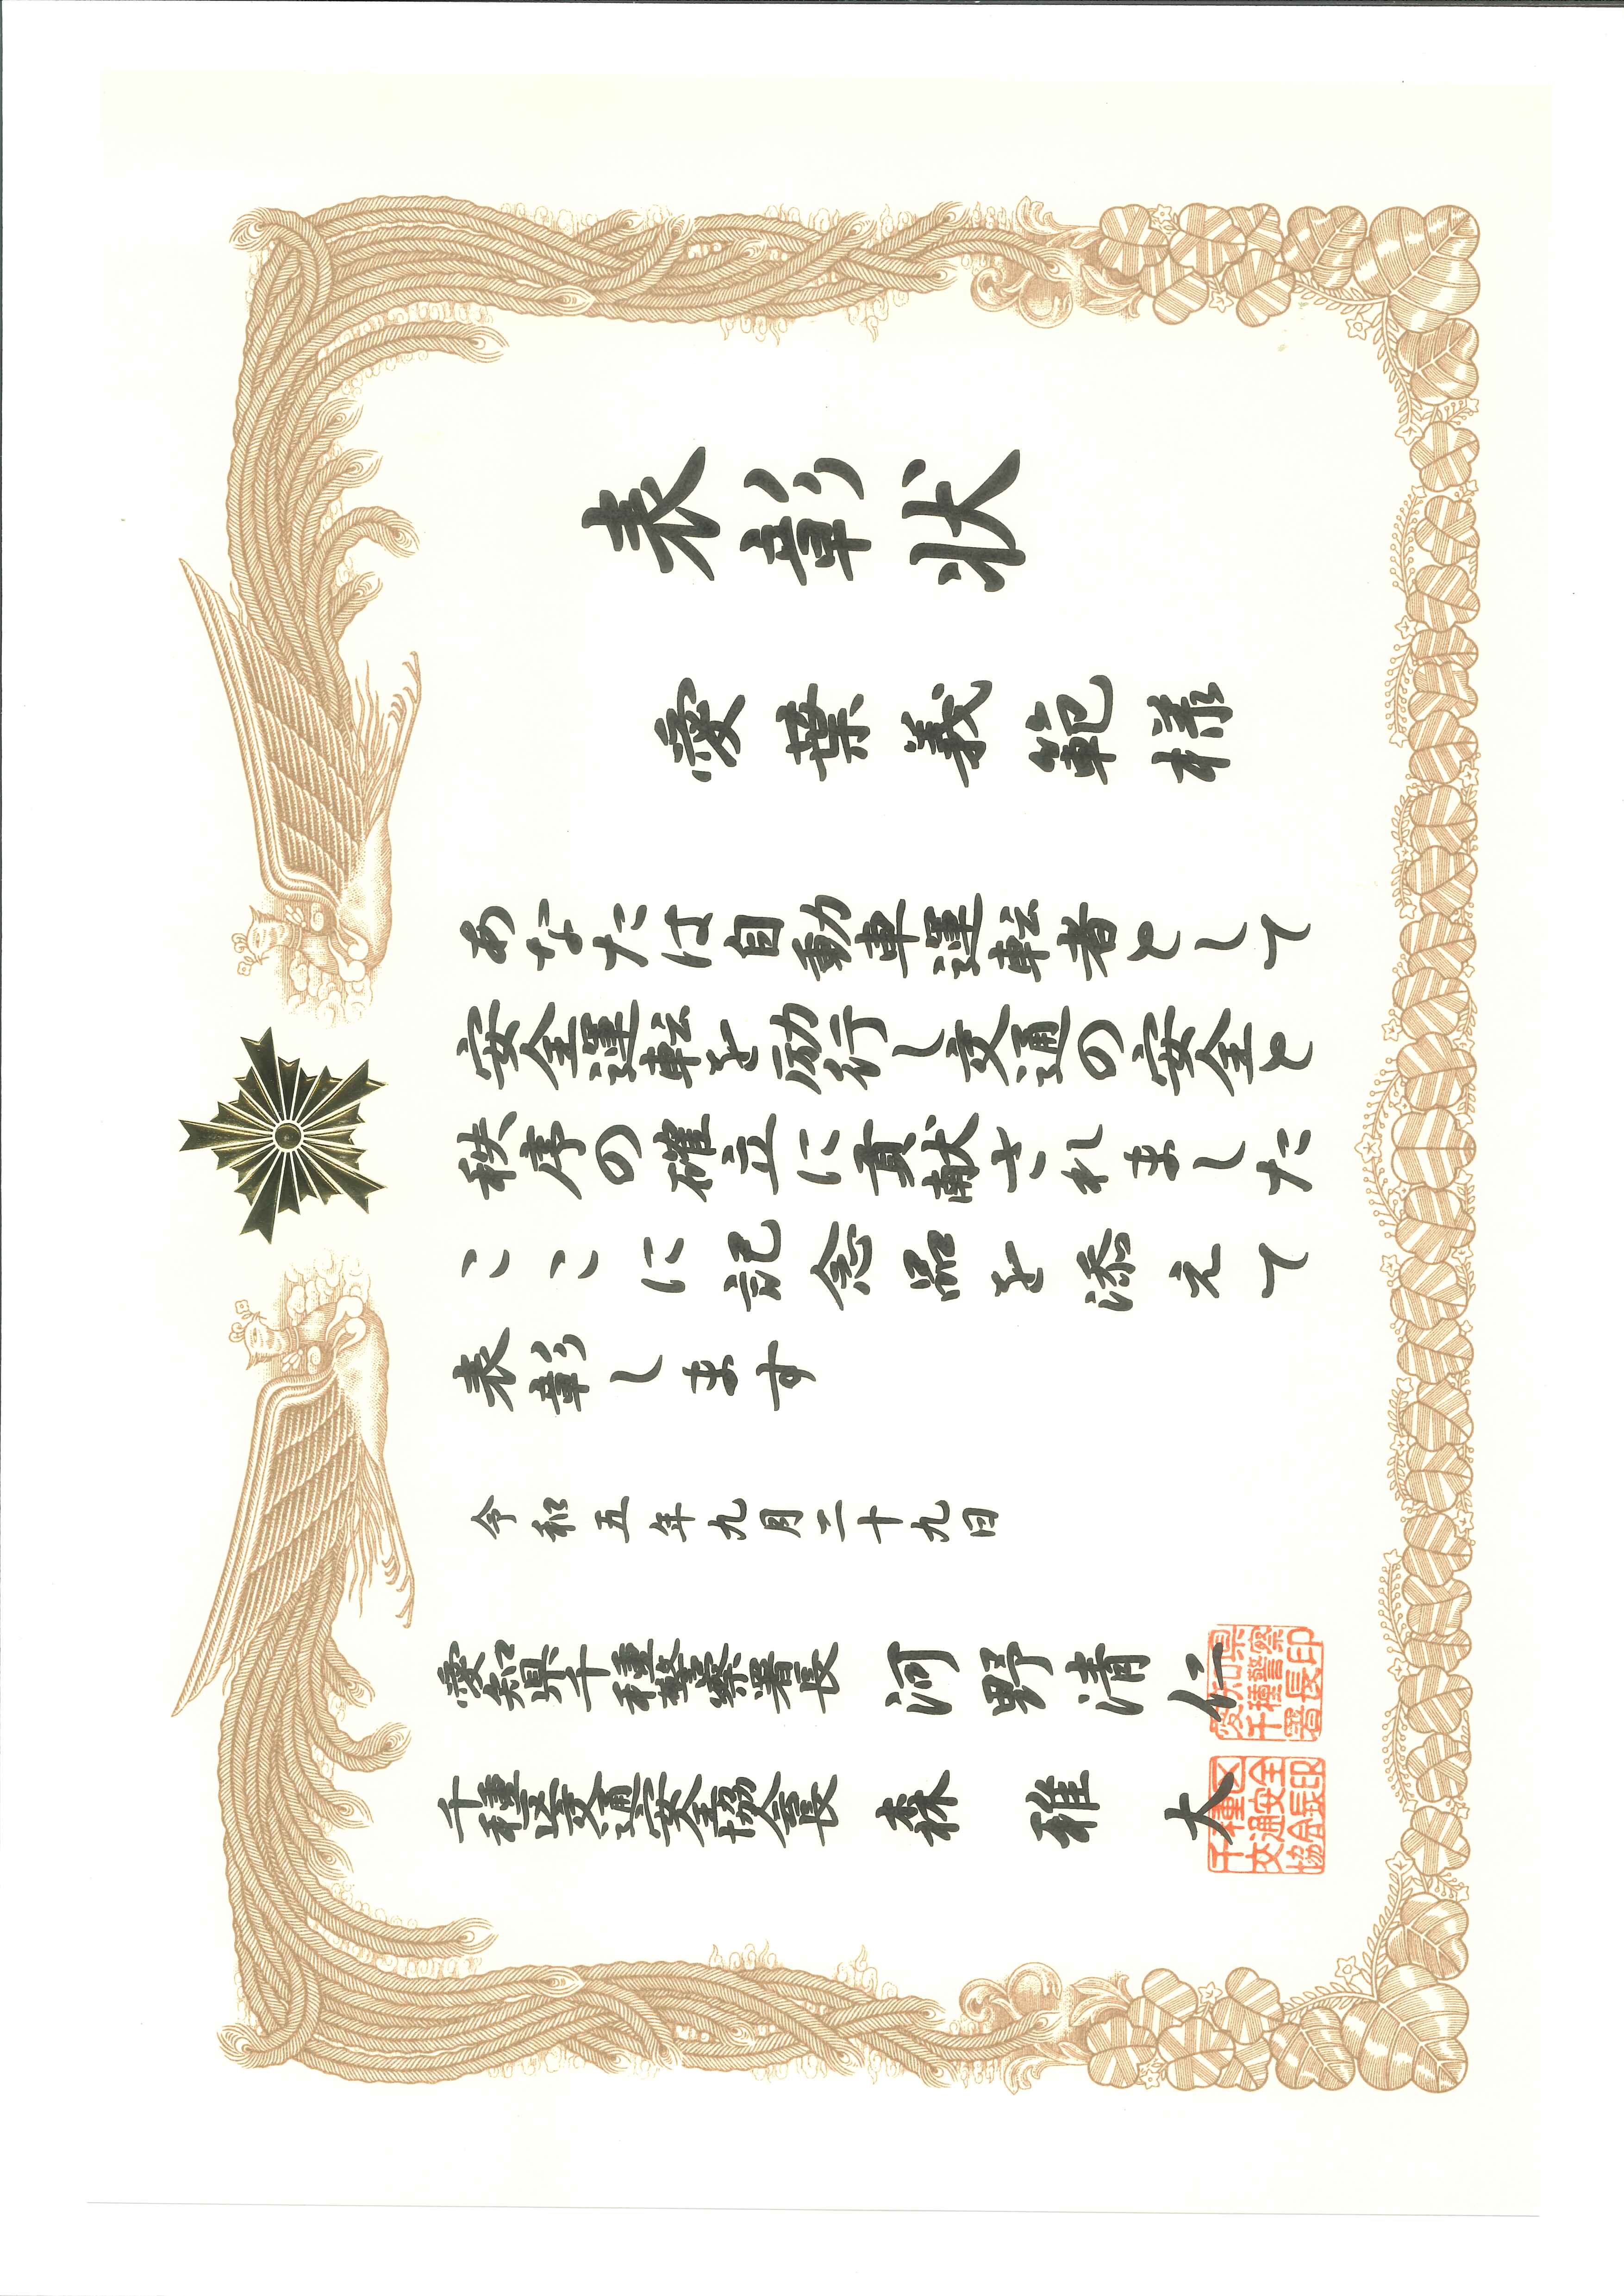 表彰状
愛葉義範様
あなたは自動車運転者として
安全運転を励行し交通の安全と
秩序の確立に貢献されました
ここに記念品を添えて
表彰します
令和五年九月二十九日
愛知県千種警察署長 河野清仁
愛知県
千種警察
署長印
千種区交通安全協会長 森稚大
千種区
交通安全
協会長印